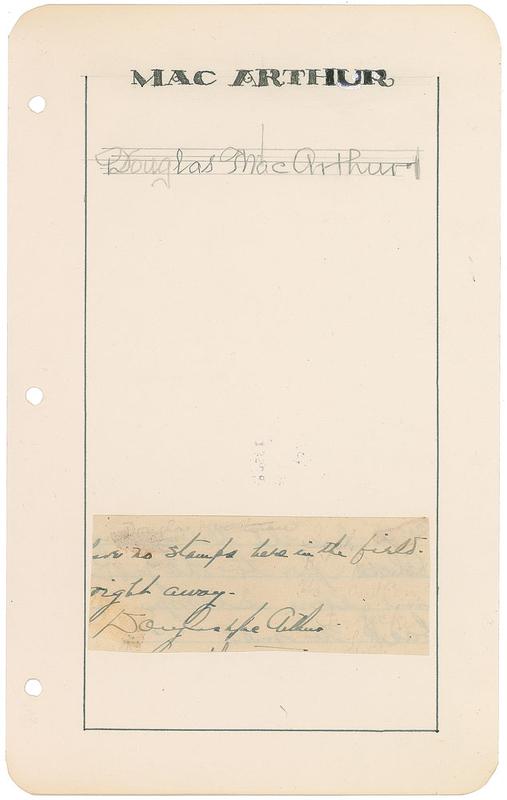 MAC ARTHUR
Douglas MacArthur
no stamps here in the field.
right away.
Douglas MacArthur